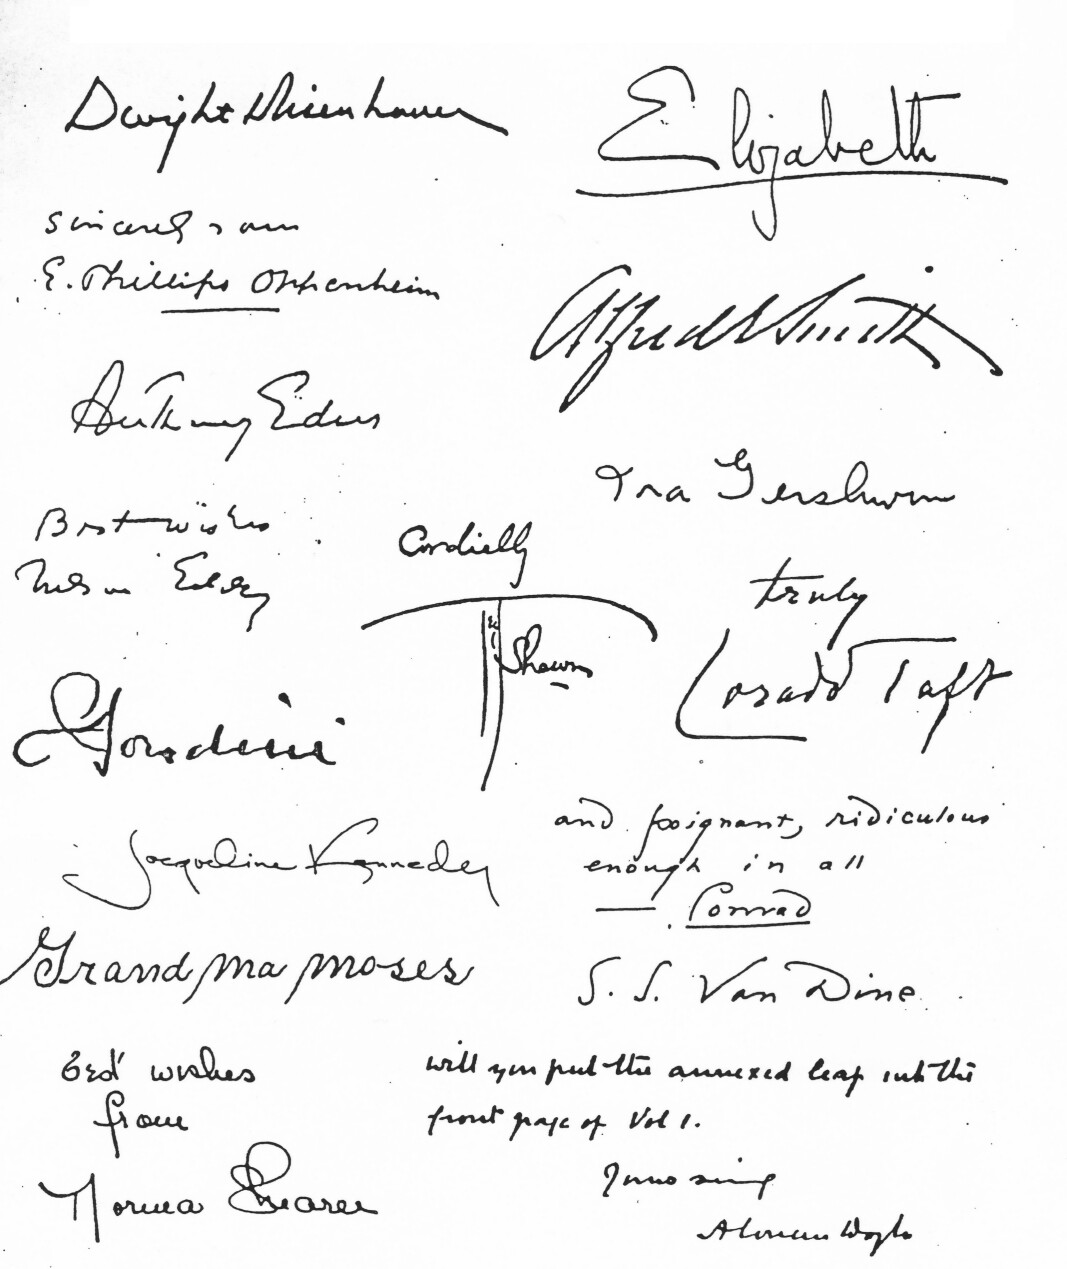 Dwight D Eisenhower
Elizabeth
Sincerely yours
E. Phillips Oppenheim
Alfred E Smith
Anthony Eden
Ira Gershwin
Best wishes
Nelson Eddy
Cordially
Ted Shawn
truly
Lorado Taft
Houdini
and poignant, ridiculous
enough in all
— Conrad
Jacqueline Kennedy
Grandma Moses
S. S. Van Dine
Best wishes
from
Norma Shearer
will you put the annexed leaf into the
front page of Vol 1.
Yours sincy
A Conan Doyle